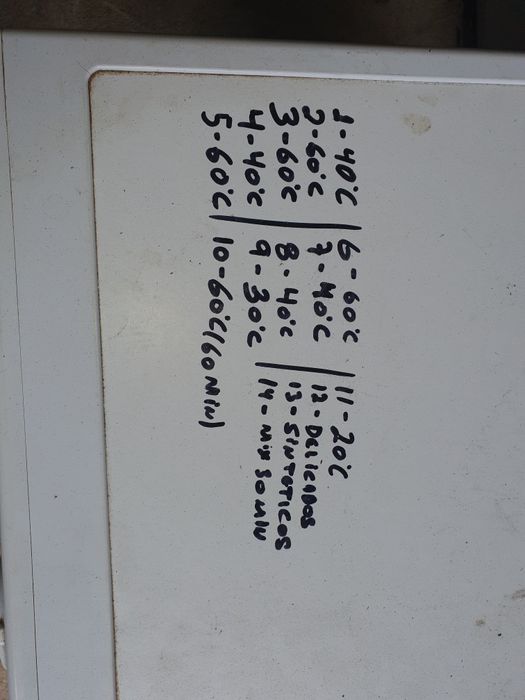 1-40°C | 6-60°C | 11-20°C
2-60°C | 7-40°C | 12-DELICADOS
3-60°C | 8-40°C | 13-SINTETICOS
4-40°C | 9-30°C | 14-MIX 30 MIN
5-60°C | 10-60°C(60MIN)